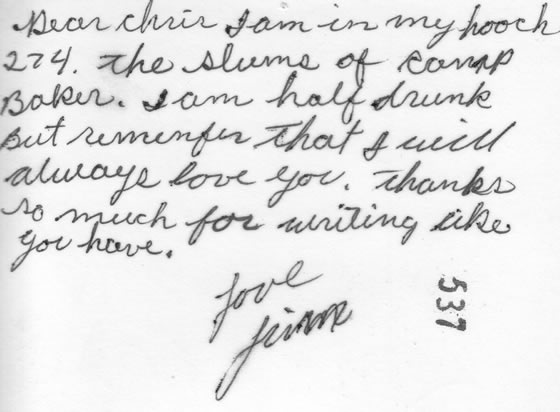 Dear chris I am in my hooch
274. The slums of Camp
Baker. I am half drunk
But rememfer that I will
always love you. Thanks
so much for writing like
you have.
Love
Jimm
537